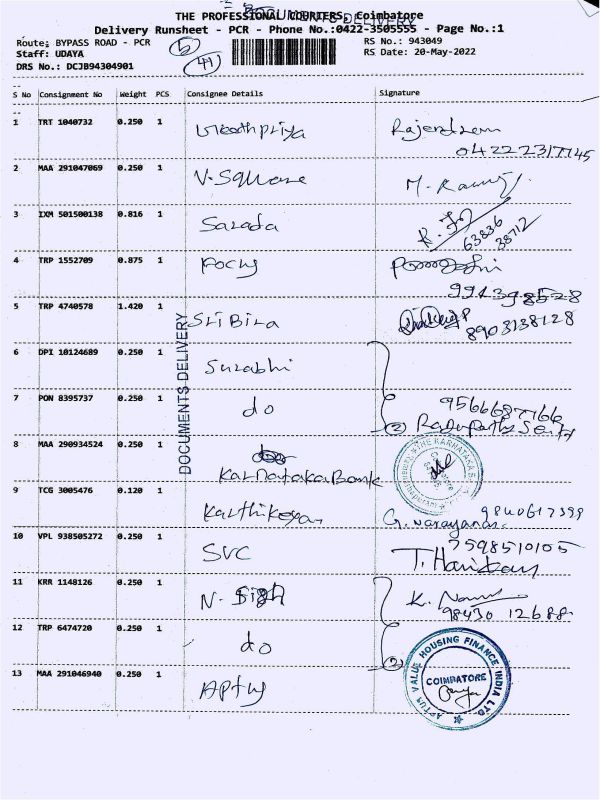 THE PROFESSIONAL COURIERS, Coimbatore
DOCUMENTS DELIVERY
Delivery Runsheet - PCR - Phone No.:0422-3505555 - Page No.:1
Route: BYPASS ROAD - PCR
RS No.: 943049
Staff: UDAYA
RS Date: 20-May-2022
DRS No.: DCJB94304901
5
41
S No Consignment No Weight PCS Consignee Details Signature
1 TRT 1040732 0.250 1
04222317745
2 MAA 291047069 0.250 1 V-Square
3 IXM 501500138 0.816 1 Sarada
63836
38712
4 TRP 1552709 0.875 1 Focus
994398528
5 TRP 4740578 1.420 1 Sri Bira
8903138128
DOCUMENTS DELIVERY
6 DPI 10124689 0.250 1 Surabhi
7 PON 8395737 0.250 1 do
2
8 MAA 290934524 0.250 1
Karnataka Bank
THE KARNATAKA
9 TCG 3005476 0.120 1 Karthikeyan
G. Narayanan
9840617399
10 VPL 938505272 0.250 1 SVC
7598510105
T. Hariharan
11 KRR 1148126 0.250 1
98430 12688
12 TRP 6474720 0.250 1 do
2
13 MAA 291046940 0.250 1 Aptus
APTUS VALUE HOUSING FINANCE INDIA LTD.
COIMBATORE